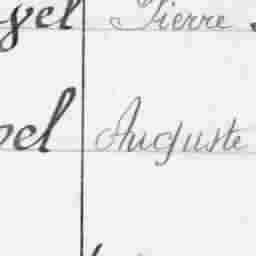 yel Pierre
pel Auguste